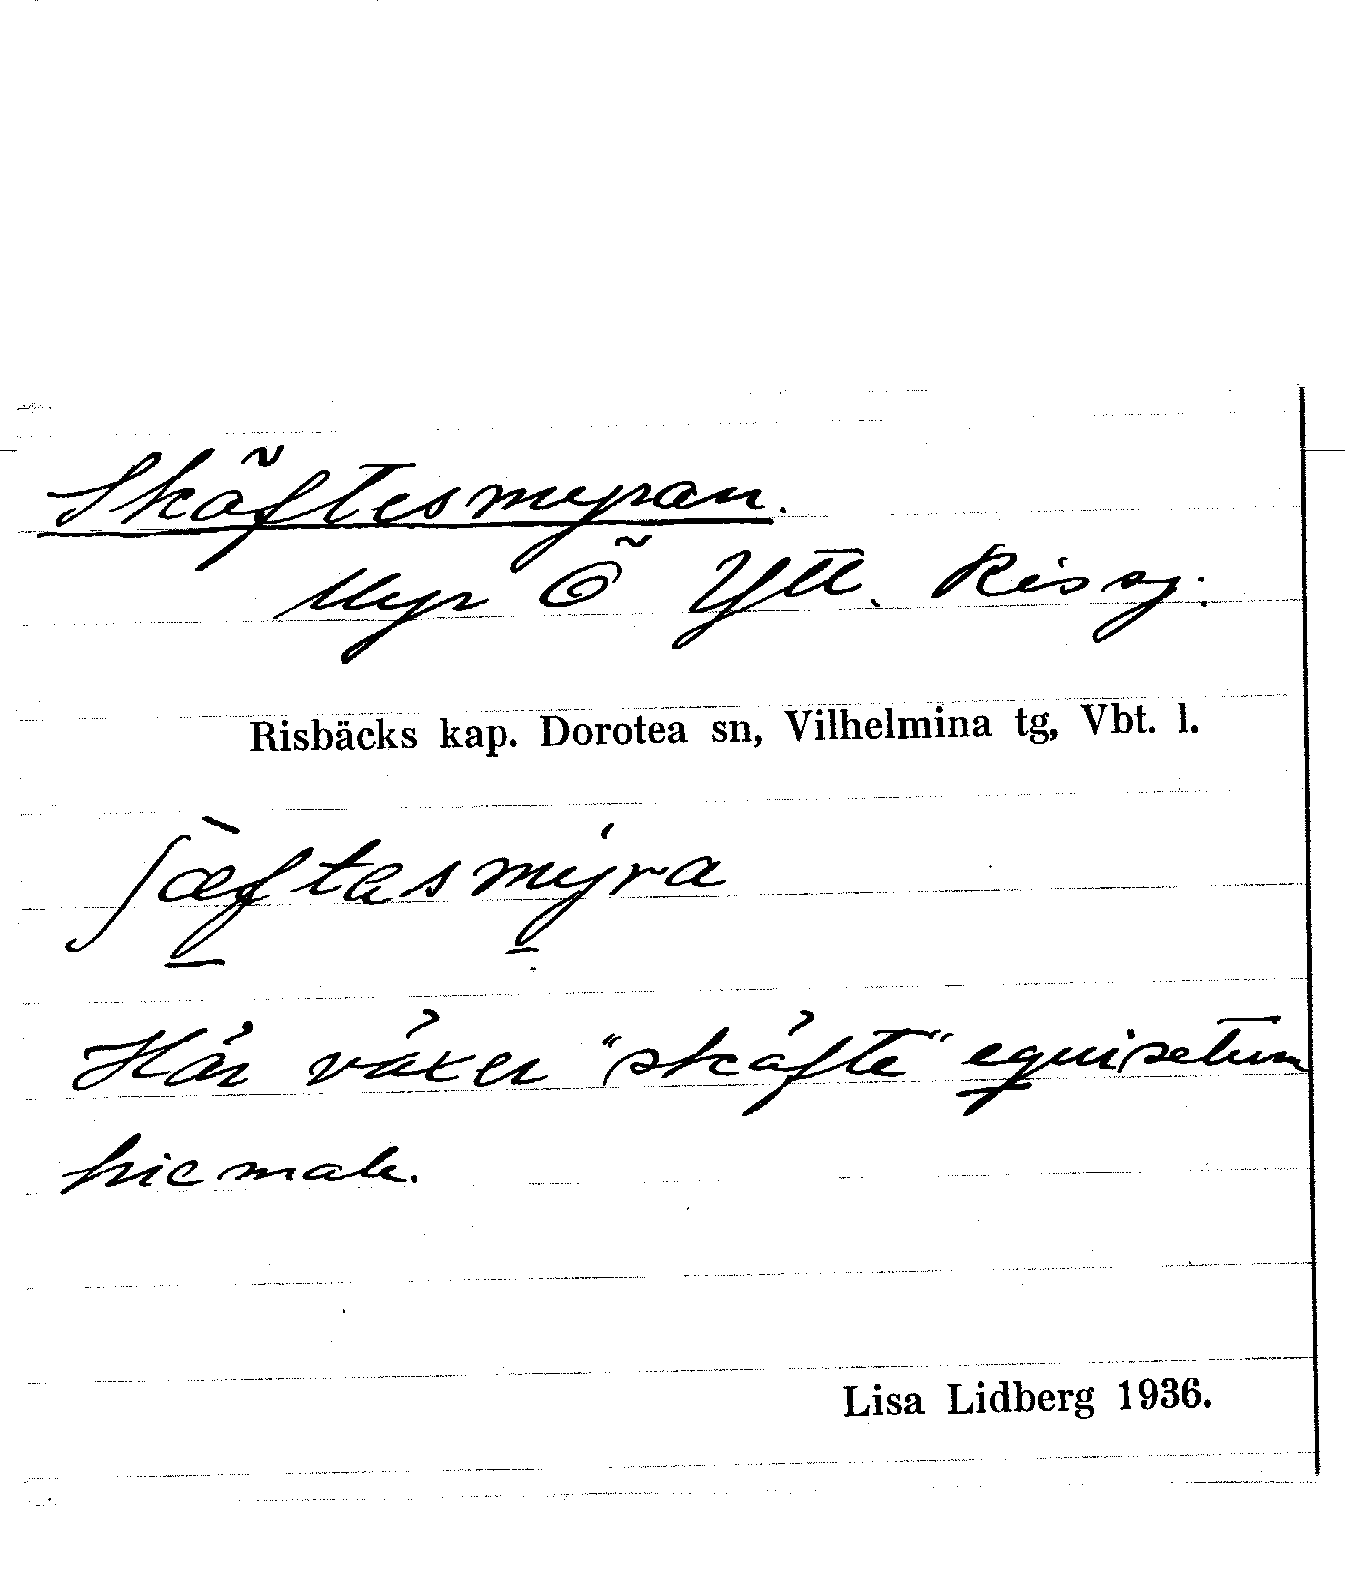 Skäftesmyran.
Myr Ö Ytt. Rissj:
Risbäcks kap. Dorotea sn, Vilhelmina tg, Vbt. l.
ʃæftasmyra
Här växer "skäfte" equisetum
hiemale.
Lisa Lidberg 1936.